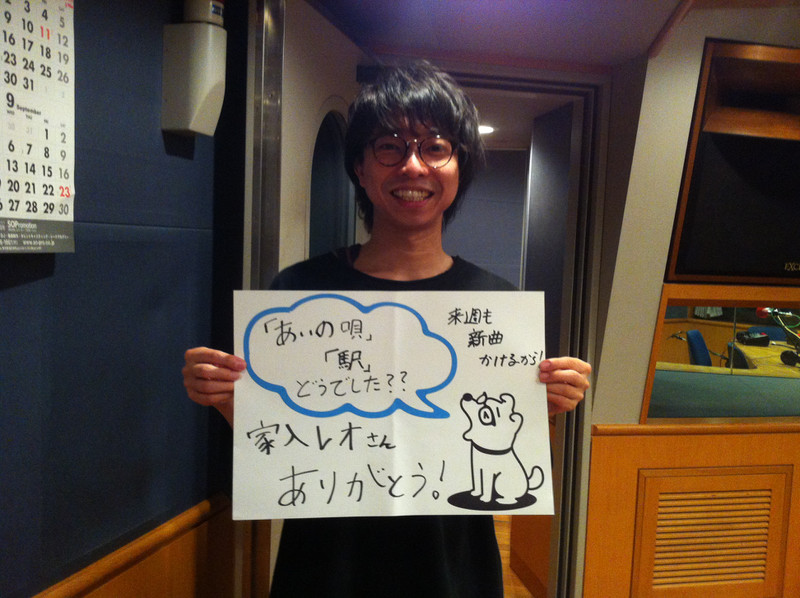 4 5
9 10 11 12
16 17 18 19
23 24 25 26
30 31
9 September
1 2
6 7 8 9
13 14 15 16
20 21 22 23
27 28 29 30
SOPromotion
「あいの唄」
「駅」
どうでした??
来週も
新曲
かけるから!
家入レオさん
ありがとう!
A